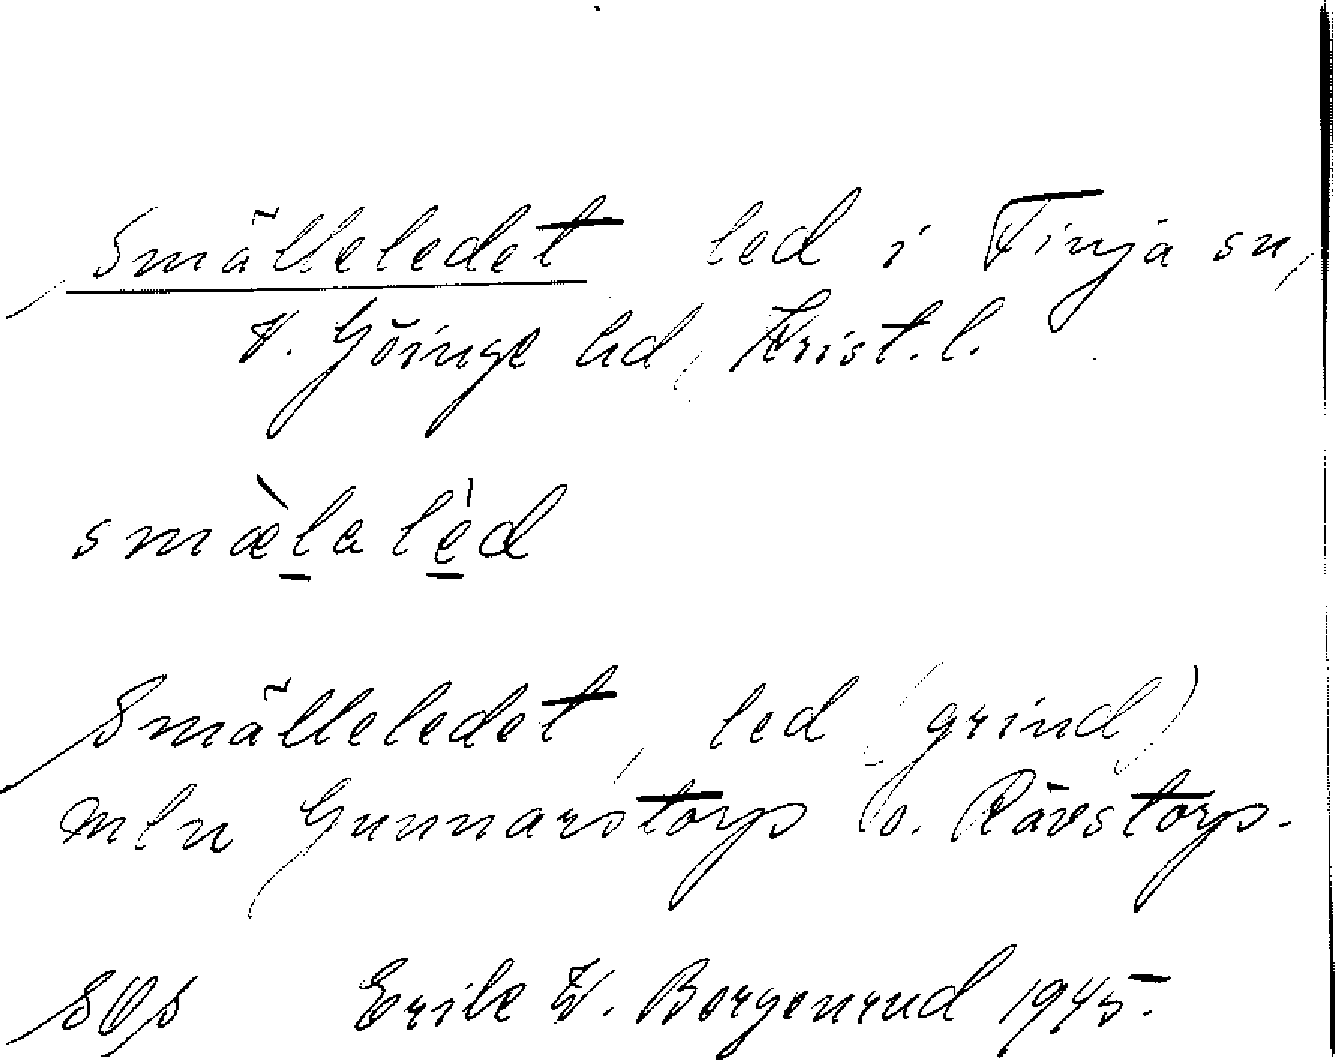 Smälleledet led i Finja sn,
V. Göinge hd, Krist. l.
smæ̀la lèd
Smälleledet, led (grind)
mln Gunnarstorp o. Rävstorp.
SOS Erik W. Borgenrud 1945.